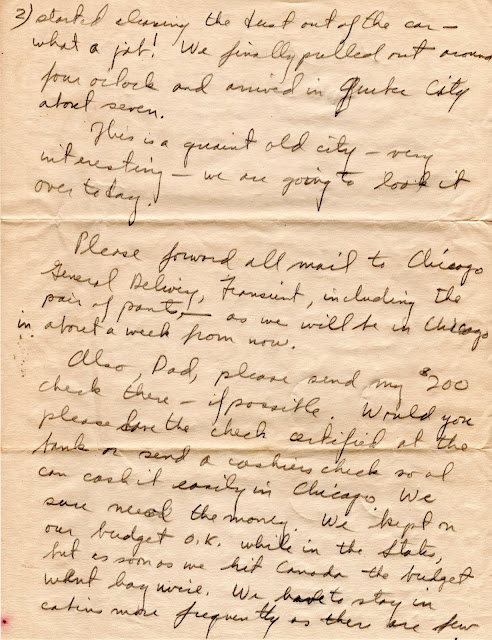 2) started cleaning the dust out of the car –
what a job! We finally pulled out around
four o'clock and arrived in Quebec City
about seven.
This is a quaint old city – very
interesting – we are going to look it
over today.
Please forward all mail to Chicago
General Delivery, Transient, including the
pair of pants, – as we will be in Chicago
in about a week from now.
Also, Dad, please send my $200
check there – if possible. Would you
please have the check certified at the
bank or send a cashiers check so I
can cash it easily in Chicago. We
sure need the money. We kept on
our budget O.K. while in the States,
but as soon as we hit Canada the budget
went haywire. We have to stay in
cabins more frequently as there are few